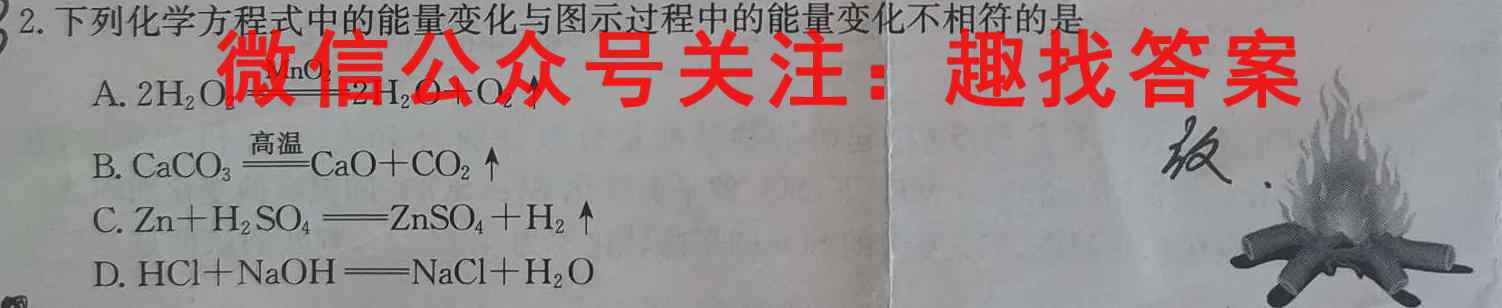 2. 下列化学方程式中的能量变化与图示过程中的能量变化不相符的是
微信公众号关注：趣找答案
MnO₂
A. 2H₂O₂═══2H₂O+O₂↑
高温
B. CaCO₃═══CaO+CO₂↑
放
C. Zn+H₂SO₄═══ZnSO₄+H₂↑
D. HCl+NaOH═══NaCl+H₂O